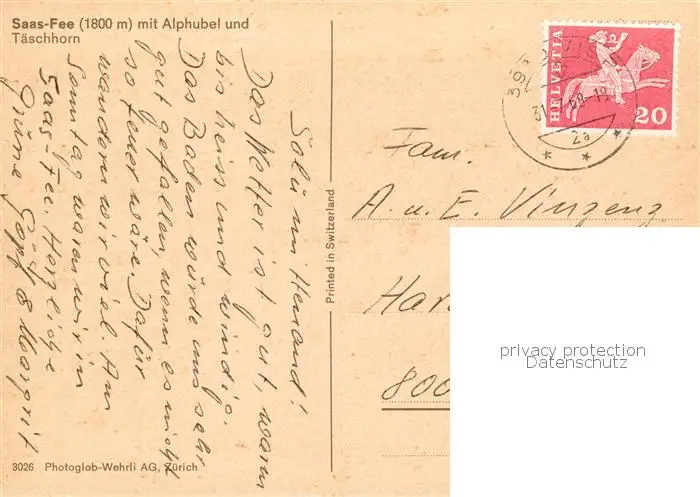 Saas-Fee (1800 m) mit Alphubel und
Täschhorn
Salü mi Heiland!
Das Wetter ist gut, warm
bis heiss und windig.
Das Baden würde uns sehr
gut gefallen, wenn es nicht
so teuer wäre. Dafür
wandern wir viel. Am
Samstag waren wir in
Saas-Fee. Herzliche
Grüsse Göpf & Margrit
3026 Photoglob-Wehrli AG, Zürich
Printed in Switzerland
HELVETIA
20
2a
Fam.
A. u. E. Vinzenz
Har
800
privacy protection
Datenschutz